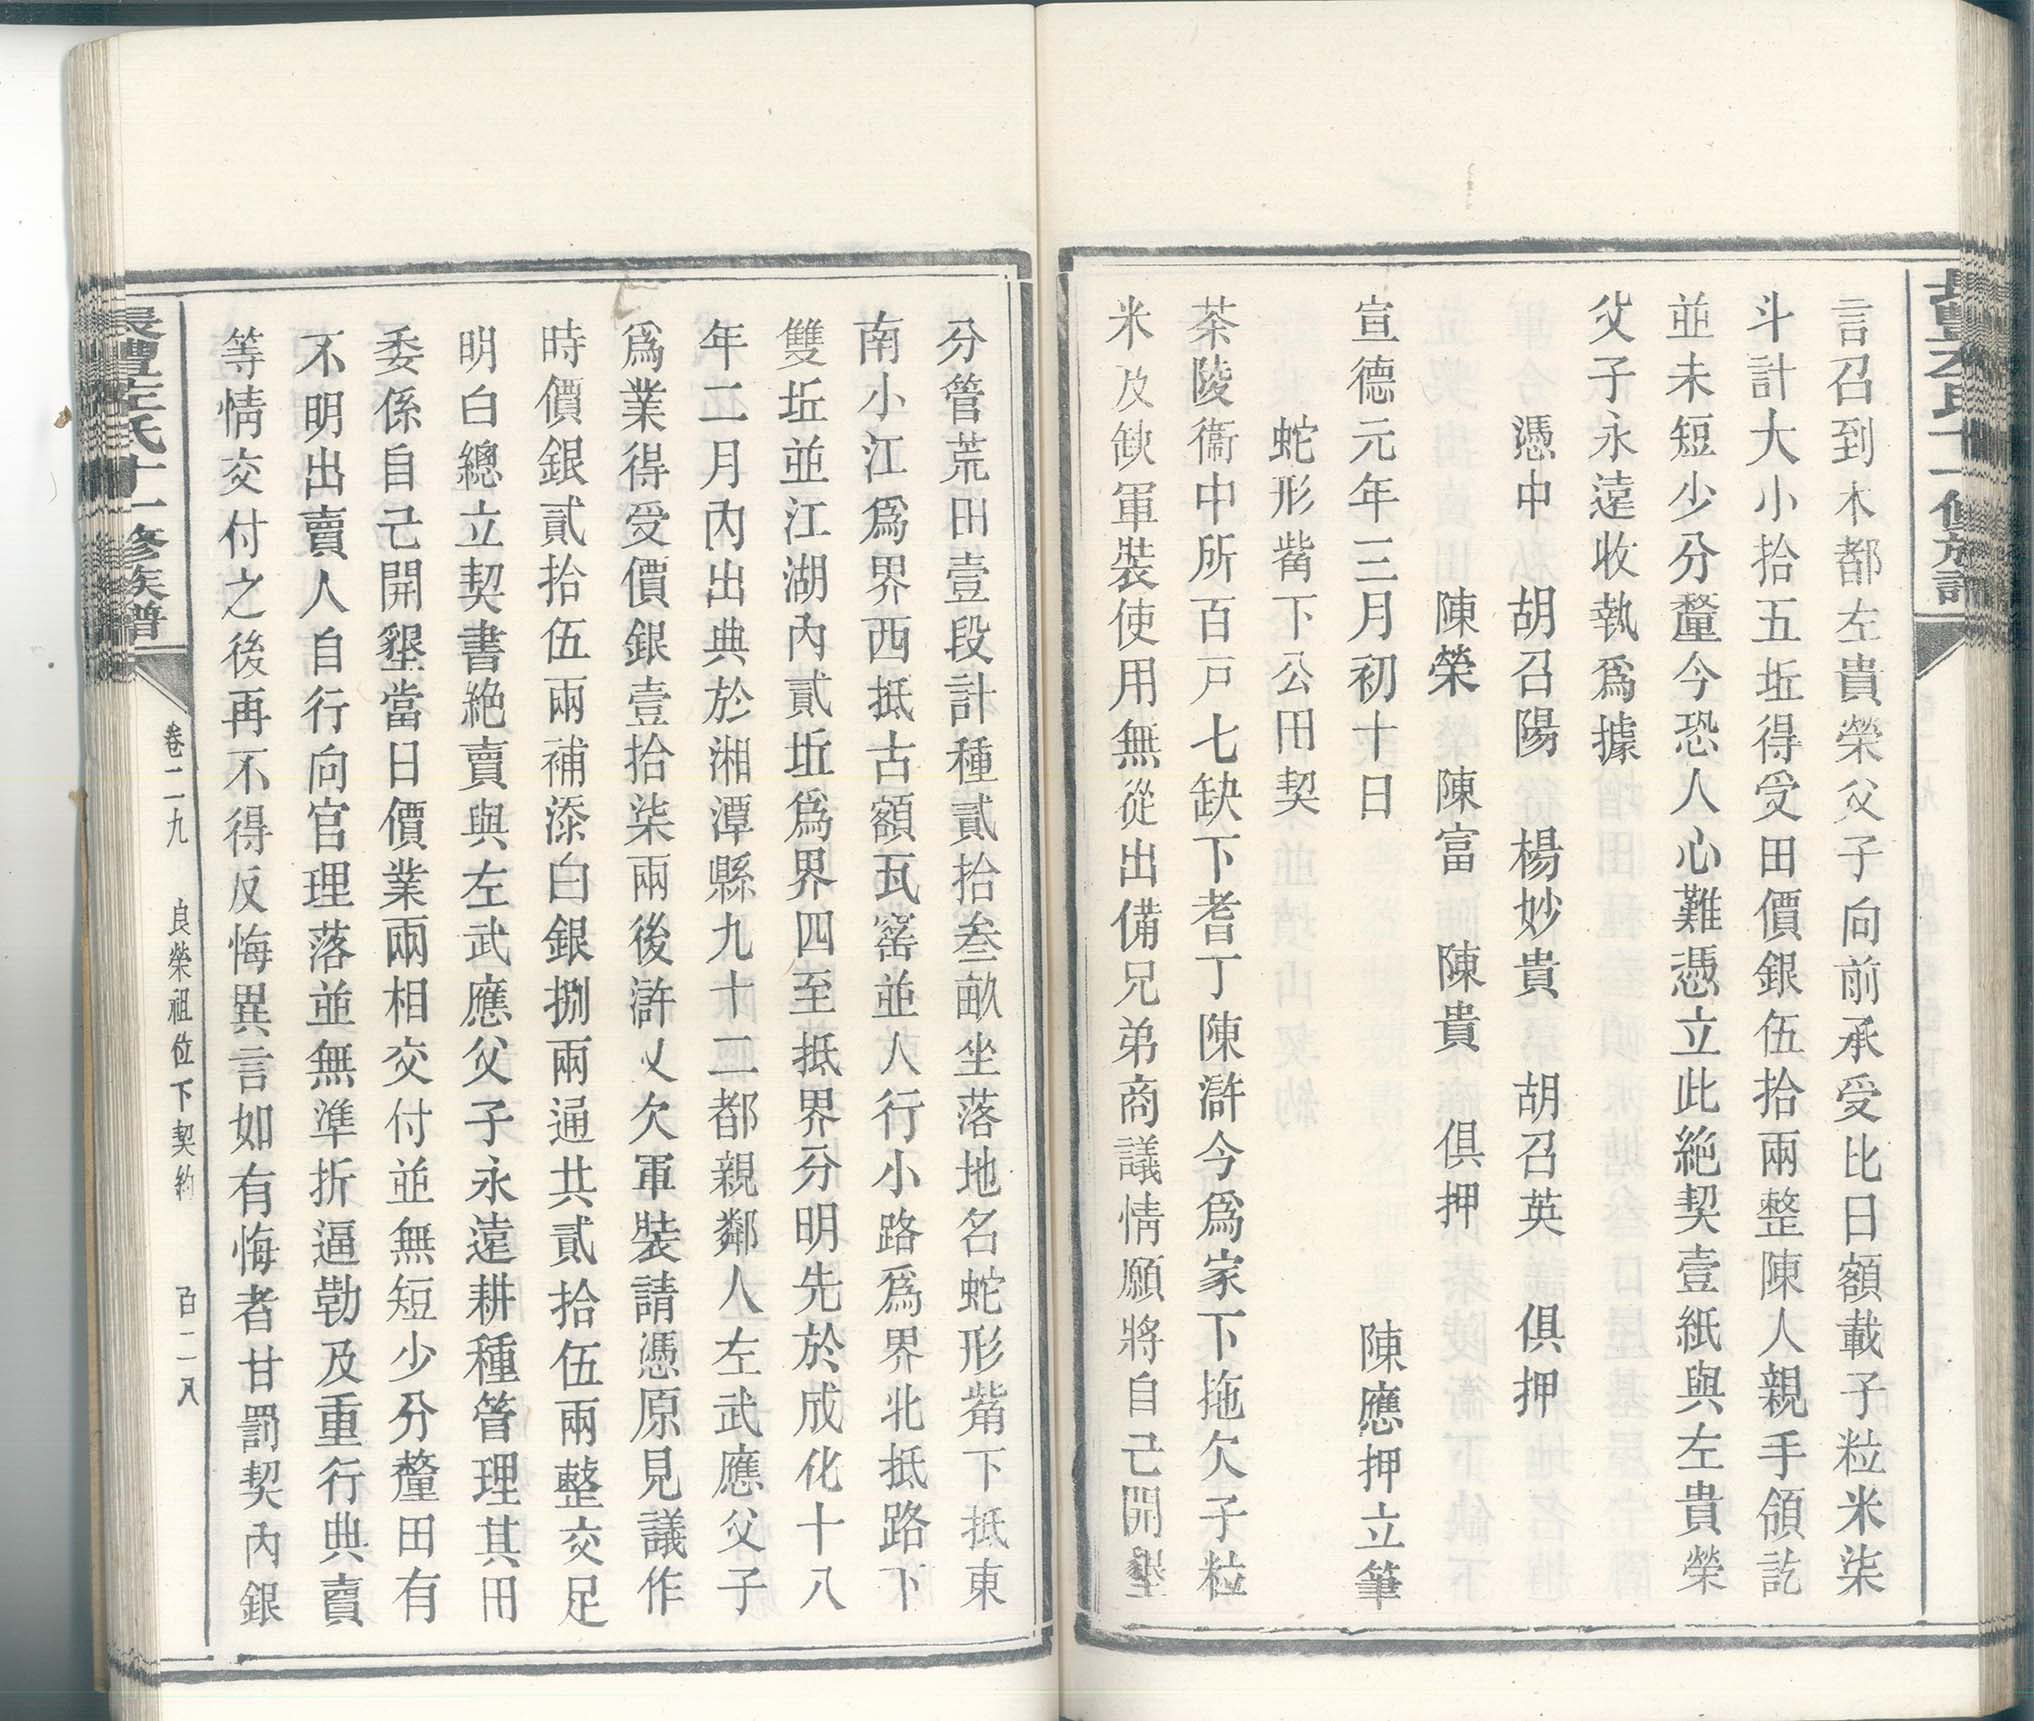 言召到木都左貴榮父子向前承受比日額載子粒米柒
斗計大小拾五坵得受田價銀伍拾兩整陳人親手領訖
並未短少分釐今恐人心難憑立此絶契壹紙與左貴榮
父子永遠收執爲據
憑中　胡召陽　楊妙貴　胡召英　俱押
陳榮　陳富　陳貴　俱押
宣德元年三月初十日　陳應押立筆
蛇形觜下公田契
茶陵衞中所百戸七缺下耆丁陳滸今爲家下拖欠子粒
米及缺軍裝使用無從出備兄弟商議情願將自己開墾
分管荒田壹段計種貳拾叁畝坐落地名蛇形觜下抵東
南小江爲界西抵古額瓦窰並人行小路爲界北抵路下
雙坵並江湖內貳坵爲界四至抵界分明先於成化十八
年二月內出典於湘潭縣九十二都親鄰人左武應父子
爲業得受價銀壹拾柒兩後滸乂欠軍裝請憑原見議作
時價銀貳拾伍兩補添白銀捌兩通共貳拾伍兩整交足
明白總立契書絶賣與左武應父子永遠耕種管理其田
委係自己開墾當日價業兩相交付並無短少分釐田有
不明出賣人自行向官理落並無準折逼勒及重行典賣
等情交付之後再不得反悔異言如有悔者甘罰契內銀
長澧左氏十一修族譜
卷二九　良榮祖位下契約　百二八